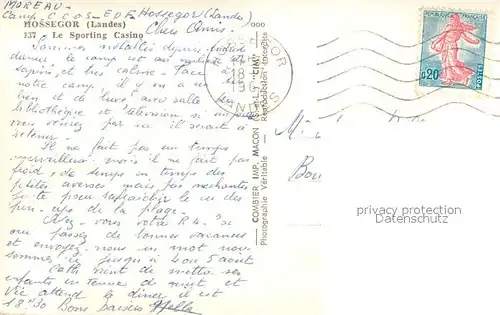 MOREAU -
Camp. C C O S - E D F. Hossegor (Landes)
HOSSEGOR (Landes)
137 Le Sporting Casino
Chers Amis.
Sommes installés depuis
danser, le camp est au milieu
sapins et très calme. Face à
notre camp il y en a un très
bien et de luxe avec salle
bibliothèque et télévision si
vous venez par ici il serait à
retenir.
Il ne fait pas un temps
merveilleux mais il ne fait pas
froid, de temps en temps des
petites averses mais pas méchantes
juste pour rafraîchir le
pin-ups de la plage.
Avez vous votre R4 - Si
oui passez de bonnes vacances
et envoyez nous un mot nous
sommes ici jusqu'à 4 ou 5 août
Cathy vient de mettre ses
enfants en tenue de nuit et
attend le diner il est
18H30 Bons baisers
COMBIER IMP. MACON
Photographie Véritable -
"CIM"
Reproduction Interdite
HOSSEGOR
LANDES
18
0,20
POSTES
M
Bon
privacy protection
Datenschutz